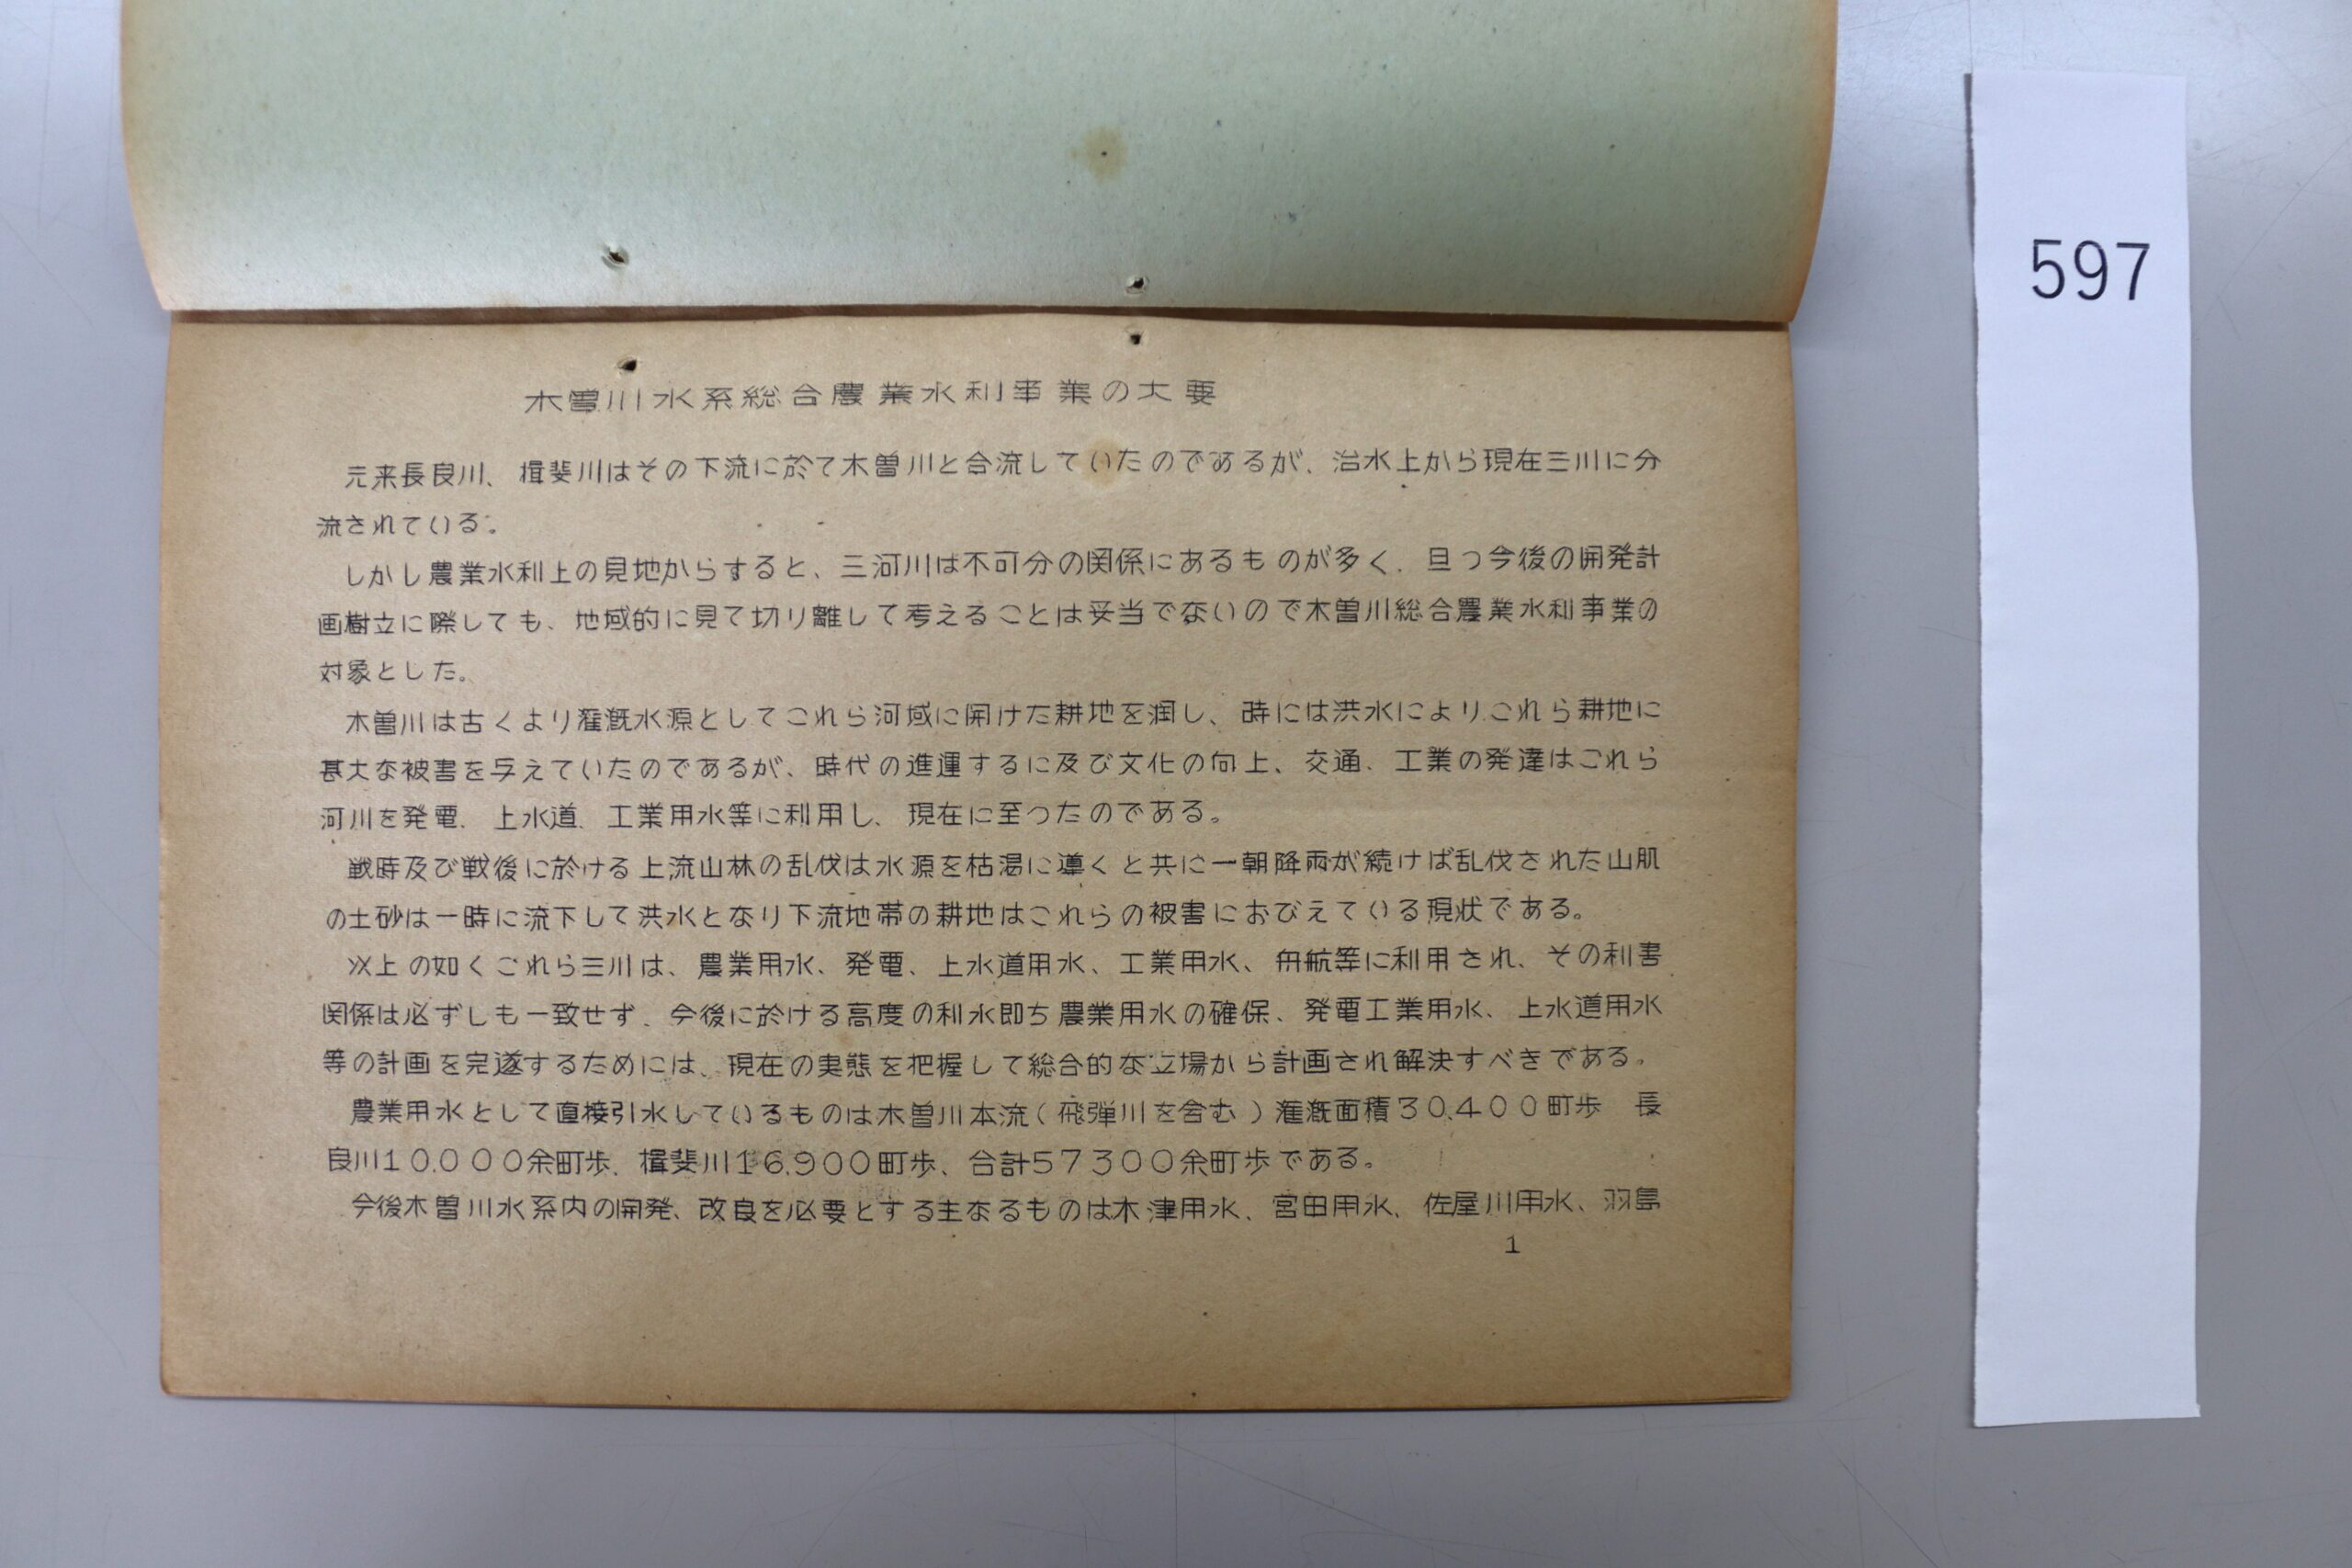 597
木曽川水系総合農業水利事業の大要
元来長良川、揖斐川はその下流に於て木曽川と合流していたのであるが、治水上から現在三川に分
流されている。
しかし農業水利上の見地からすると、三河川は不可分の関係にあるものが多く、旦つ今後の開発計
画樹立に際しても、地域的に見て切り離して考えることは妥当でないので木曽川総合農業水利事業の
対象とした。
木曽川は古くより灌漑水源としてこれら河域に開けた耕地を潤し、時には洪水によりこれら耕地に
甚大な被害を与えていたのであるが、時代の進運するに及び文化の向上、交通、工業の発達はこれら
河川を発電、上水道、工業用水等に利用し、現在に至つたのである。
戦時及び戦後に於ける上流山林の乱伐は水源を枯渇に導くと共に一朝降雨が続けば乱伐された山肌
の土砂は一時に流下して洪水となり下流地帯の耕地はこれらの被害におびえている現状である。
以上の如くこれら三川は、農業用水、発電、上水道用水、工業用水、舟航等に利用され、その利害
関係は必ずしも一致せず、今後に於ける高度の利水即ち農業用水の確保、発電工業用水、上水道用水
等の計画を完遂するためには、現在の実態を把握して総合的な立場から計画され解決すべきである。
農業用水として直接引水しているものは木曽川本流(飛弾川を含む)灌漑面積30,400町歩 長
良川10,000余町歩、揖斐川16,900町歩、合計57300余町歩である。
今後木曽川水系内の開発、改良を必要とする主なるものは木津用水、宮田用水、佐屋川用水、羽島
1